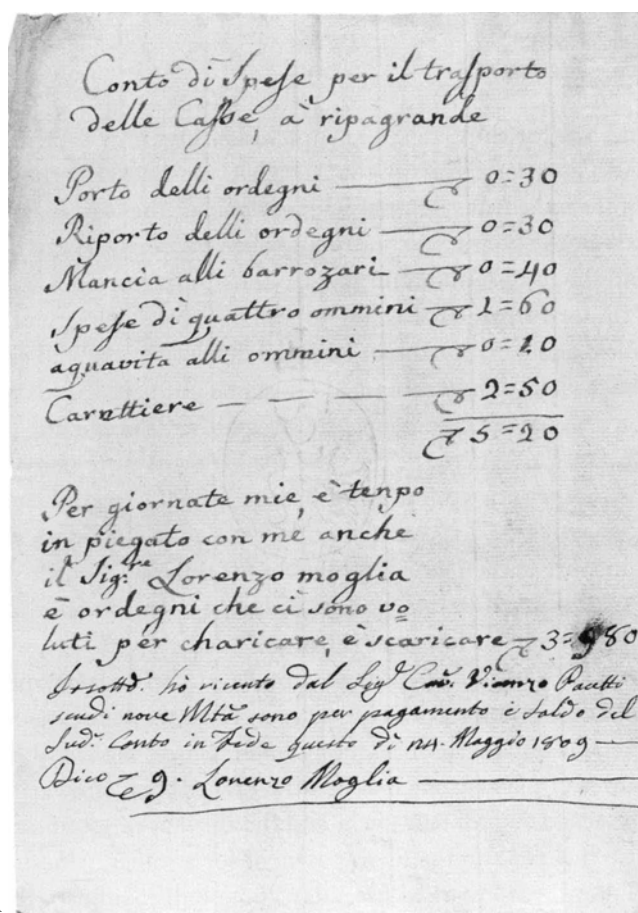 Conto di Spese per il trasporto
delle Casse, a ripagrande
Porto delli ordegni 0=30
Riporto delli ordegni 0=30
Mancia alli barrozari 0=40
Spese di quattro ommini 1=60
aquavita alli ommini 0=10
Carettiere 2=50
5=20
Per giornate mie, è tenpo
in piegato con me anche
il Sig:re Lorenzo moglia
è ordegni che ci sono vo=
luti per charicare, è scaricare 3=80
Io sottd. hò ricevuto dal Sigr. Cav. Vicenzo Pacetti
scudi nove Mta sono per pagamento è saldo del
Sudo. Conto in Fede questo dì 24. Maggio 1809
Dico 9. Lorenzo Moglia